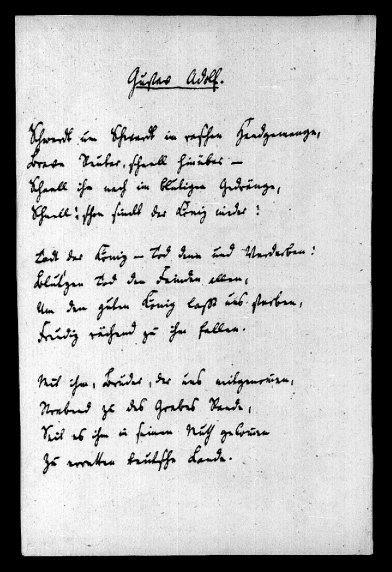 Gustav Adolf.
Schwerdt um Schwerdt in raschen Handgemenge,
Brave Reuter, schnell hinüber –
Schnell ihm nach im blutigen Gedränge,
Schnell! schon sinkt der König nieder!
Todt der König – Tod denn und Verderben!
Tod den Feinden allen,
Um den guten König laßt uns sterben,
Freudig rächend zu ihm fallen.
Mit ihm, Brüder, der uns
zu des Grabes Rande,
Weil es ihm in seinem Muth gelonnen
Zu erretten teutsche Lande.